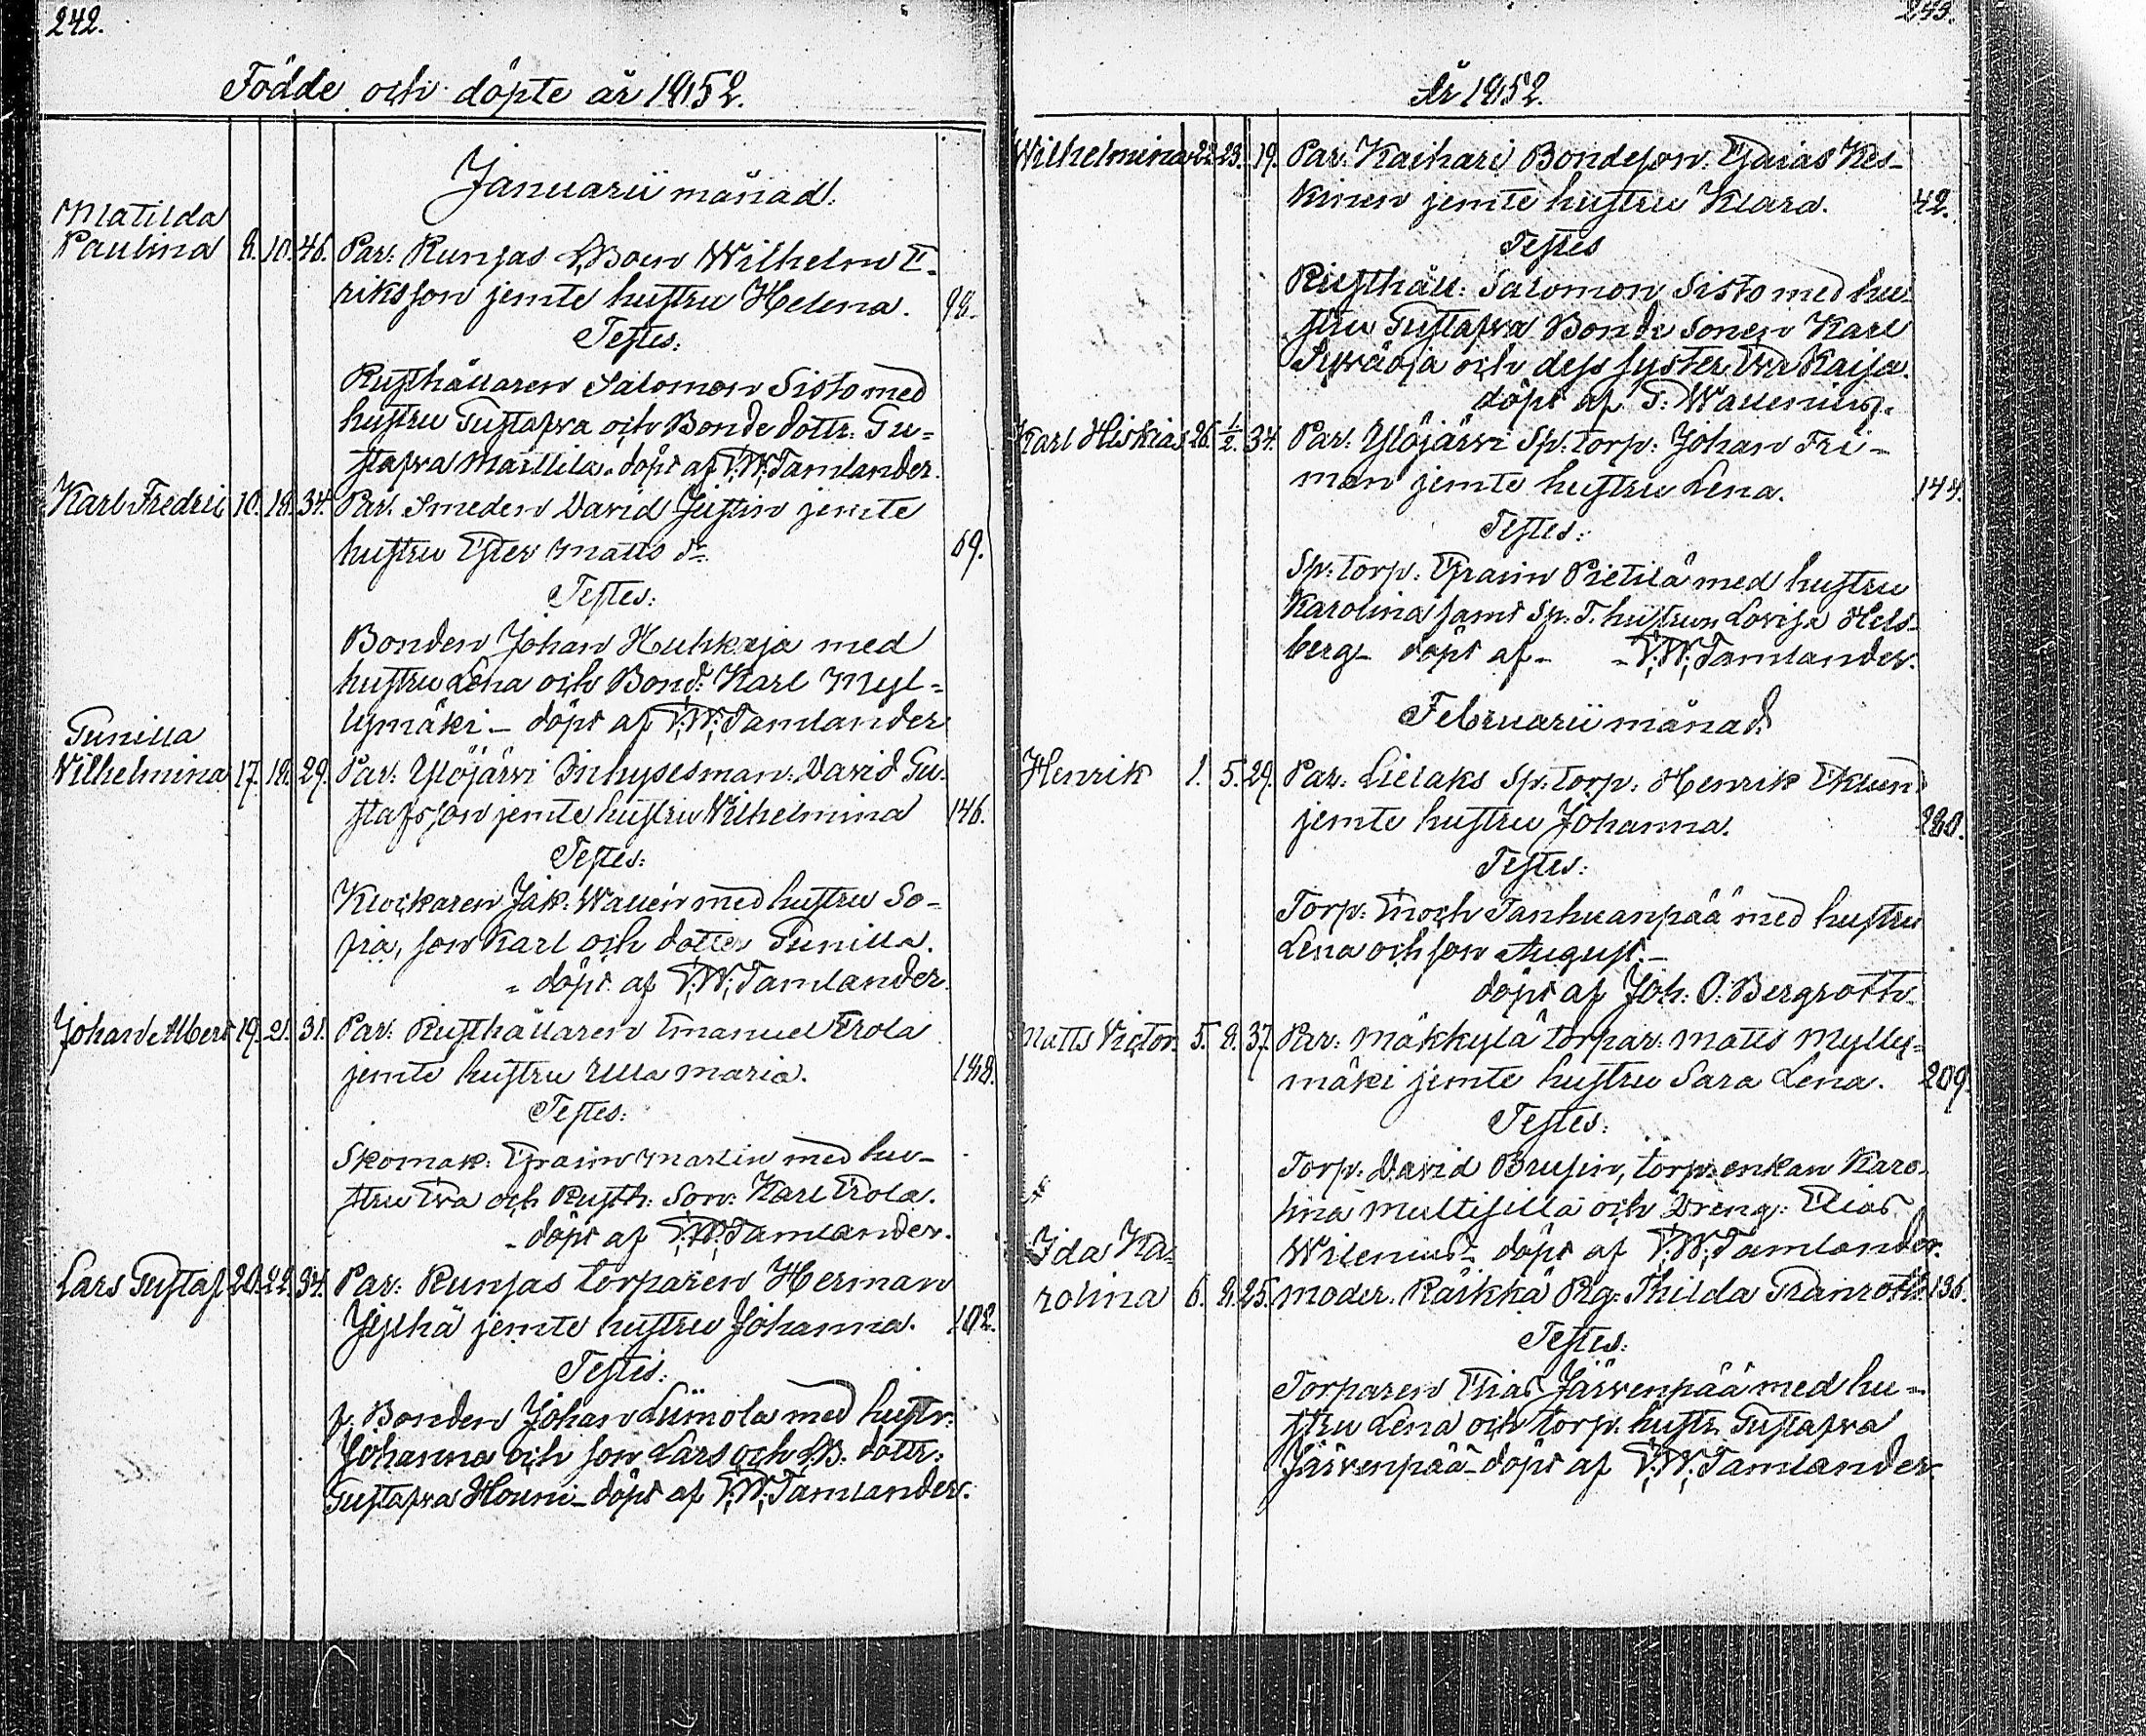 242.
Födde och döpte år 1852.
Januarii månad.
Matilda
Paulina 8. 10. 46. Par: Runsas S.Boen Wilhelm E-
riksson jemte hustru Helena. 98.
Testes:
Rusthållaren Salomon Sisto med
hustru Gustafva och Bonde dottr: Gu=
stafva Mattila. döpt af V:W:Tamlander.
Karl Fredric 10. 18. 34. Par. Smeden David Justin jemte
hustru Ester Matts dr 69.
Testes:
Bonden Johan Huhkaja med
hustru Lena och Bond: Karl Myl=
lymäki. – döpt af V:W:Tamlander
Gunilla
Wilhelmina 17. 18. 29. Par: Ylöjärvi Inhysesman: David Gu-
stafsson jemte hustru Wilhelmina 146.
Testes:
Klockaren Jak: Wallén med hustru So-
fia, son Karl och dotter Gunilla.
- döpt af V:W:Tamlander.
Johan Albert 19. 21. 31. Par: Rusthållaren Emanuel Erola
jemte hustru Ulla Maria. 188.
Testes:
Skomak: Efraim Martin med hu-
stru Eva och Rusth: Son: Karl Erola.
- döpt af V:W:Tamlander.
Lars Gustaf 20. 22. 34. Par: Runsas torparen Herman
jemte hustru Johanna. 102.
Testes:
f. Bonden Johan Liimola med hustr:
Johanna och son Lars och S.B. dottr:
Gustafva Houni – döpt af V:W:Tamlander.
243.
År 1852.
Wilhelmina 22. 23. 19. Par: Kaihari Bondeson: Esaias Kes-
kinen jemte hustru Klara. 42.
Testes
Rusthåll: Salomon Sisto med hu-
stru Gustafva Bonde Sonen Karl
och dess syster Eva Kaisa.
döpt af G: Wallenius.
Karl Hiskias 26. 1/2. 34. Par: Ylöjärvi Sp: torp: Johan Fri-
man jemte hustru Lena. 144.
Testes:
Sp: torp: Efraim Pietilä med hustru
Karolina samt Sp. T. hustrun Lovisa Hels-
berg – döpt af – V:W:Tamlander.
Februarii månad.
Henrik 1. 5. 29. Par: Lielaks Sp: torp: Henrik Eklund
jemte hustru Johanna. 280.
Testes:
Torp: Enoch Tanhuanpää med hustru
Lena och son August. –
döpt af Joh: O: Bergroth.
Matts Victor. 5. 8. 37. Par: Mäkkylä torpar: Matts Mylly=
mäki jemte hustru Sara Lena. 209.
Testes:
Torp: David Brusin, torp: enkan Karo-
lina Multisilla och Dreng: Elias
Wilenius – döpt af V:W:Tamlander.
Ida Ka=
rolina 6. 8. 25. Moder. Räikkä Pig: Thilda Granroth. 136.
Testes:
Torparen Elias Järvenpää med hu-
stru Lena och torp. hustr. Gustafva
Järvenpää – döpt af V:W:Tamlander